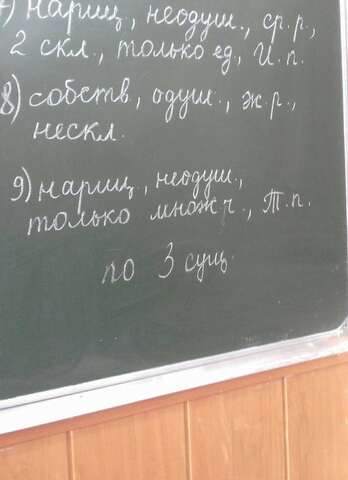 7) нариц, неодуш., ср.р.,
2 скл., только ед., И.п.
8) собств, одуш., ж.р.,
нескл.
9) нариц, неодуш.,
только множ ч., Т.п.
по 3 сущ.